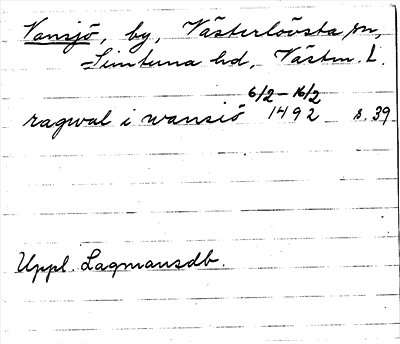 Vansjö, by, Västerlövsta sn,
Simtuna hd, Västm. L.
6/2-16/2
ragwal i wansiö 1492 s. 39
Uppl. Lagmansdb.